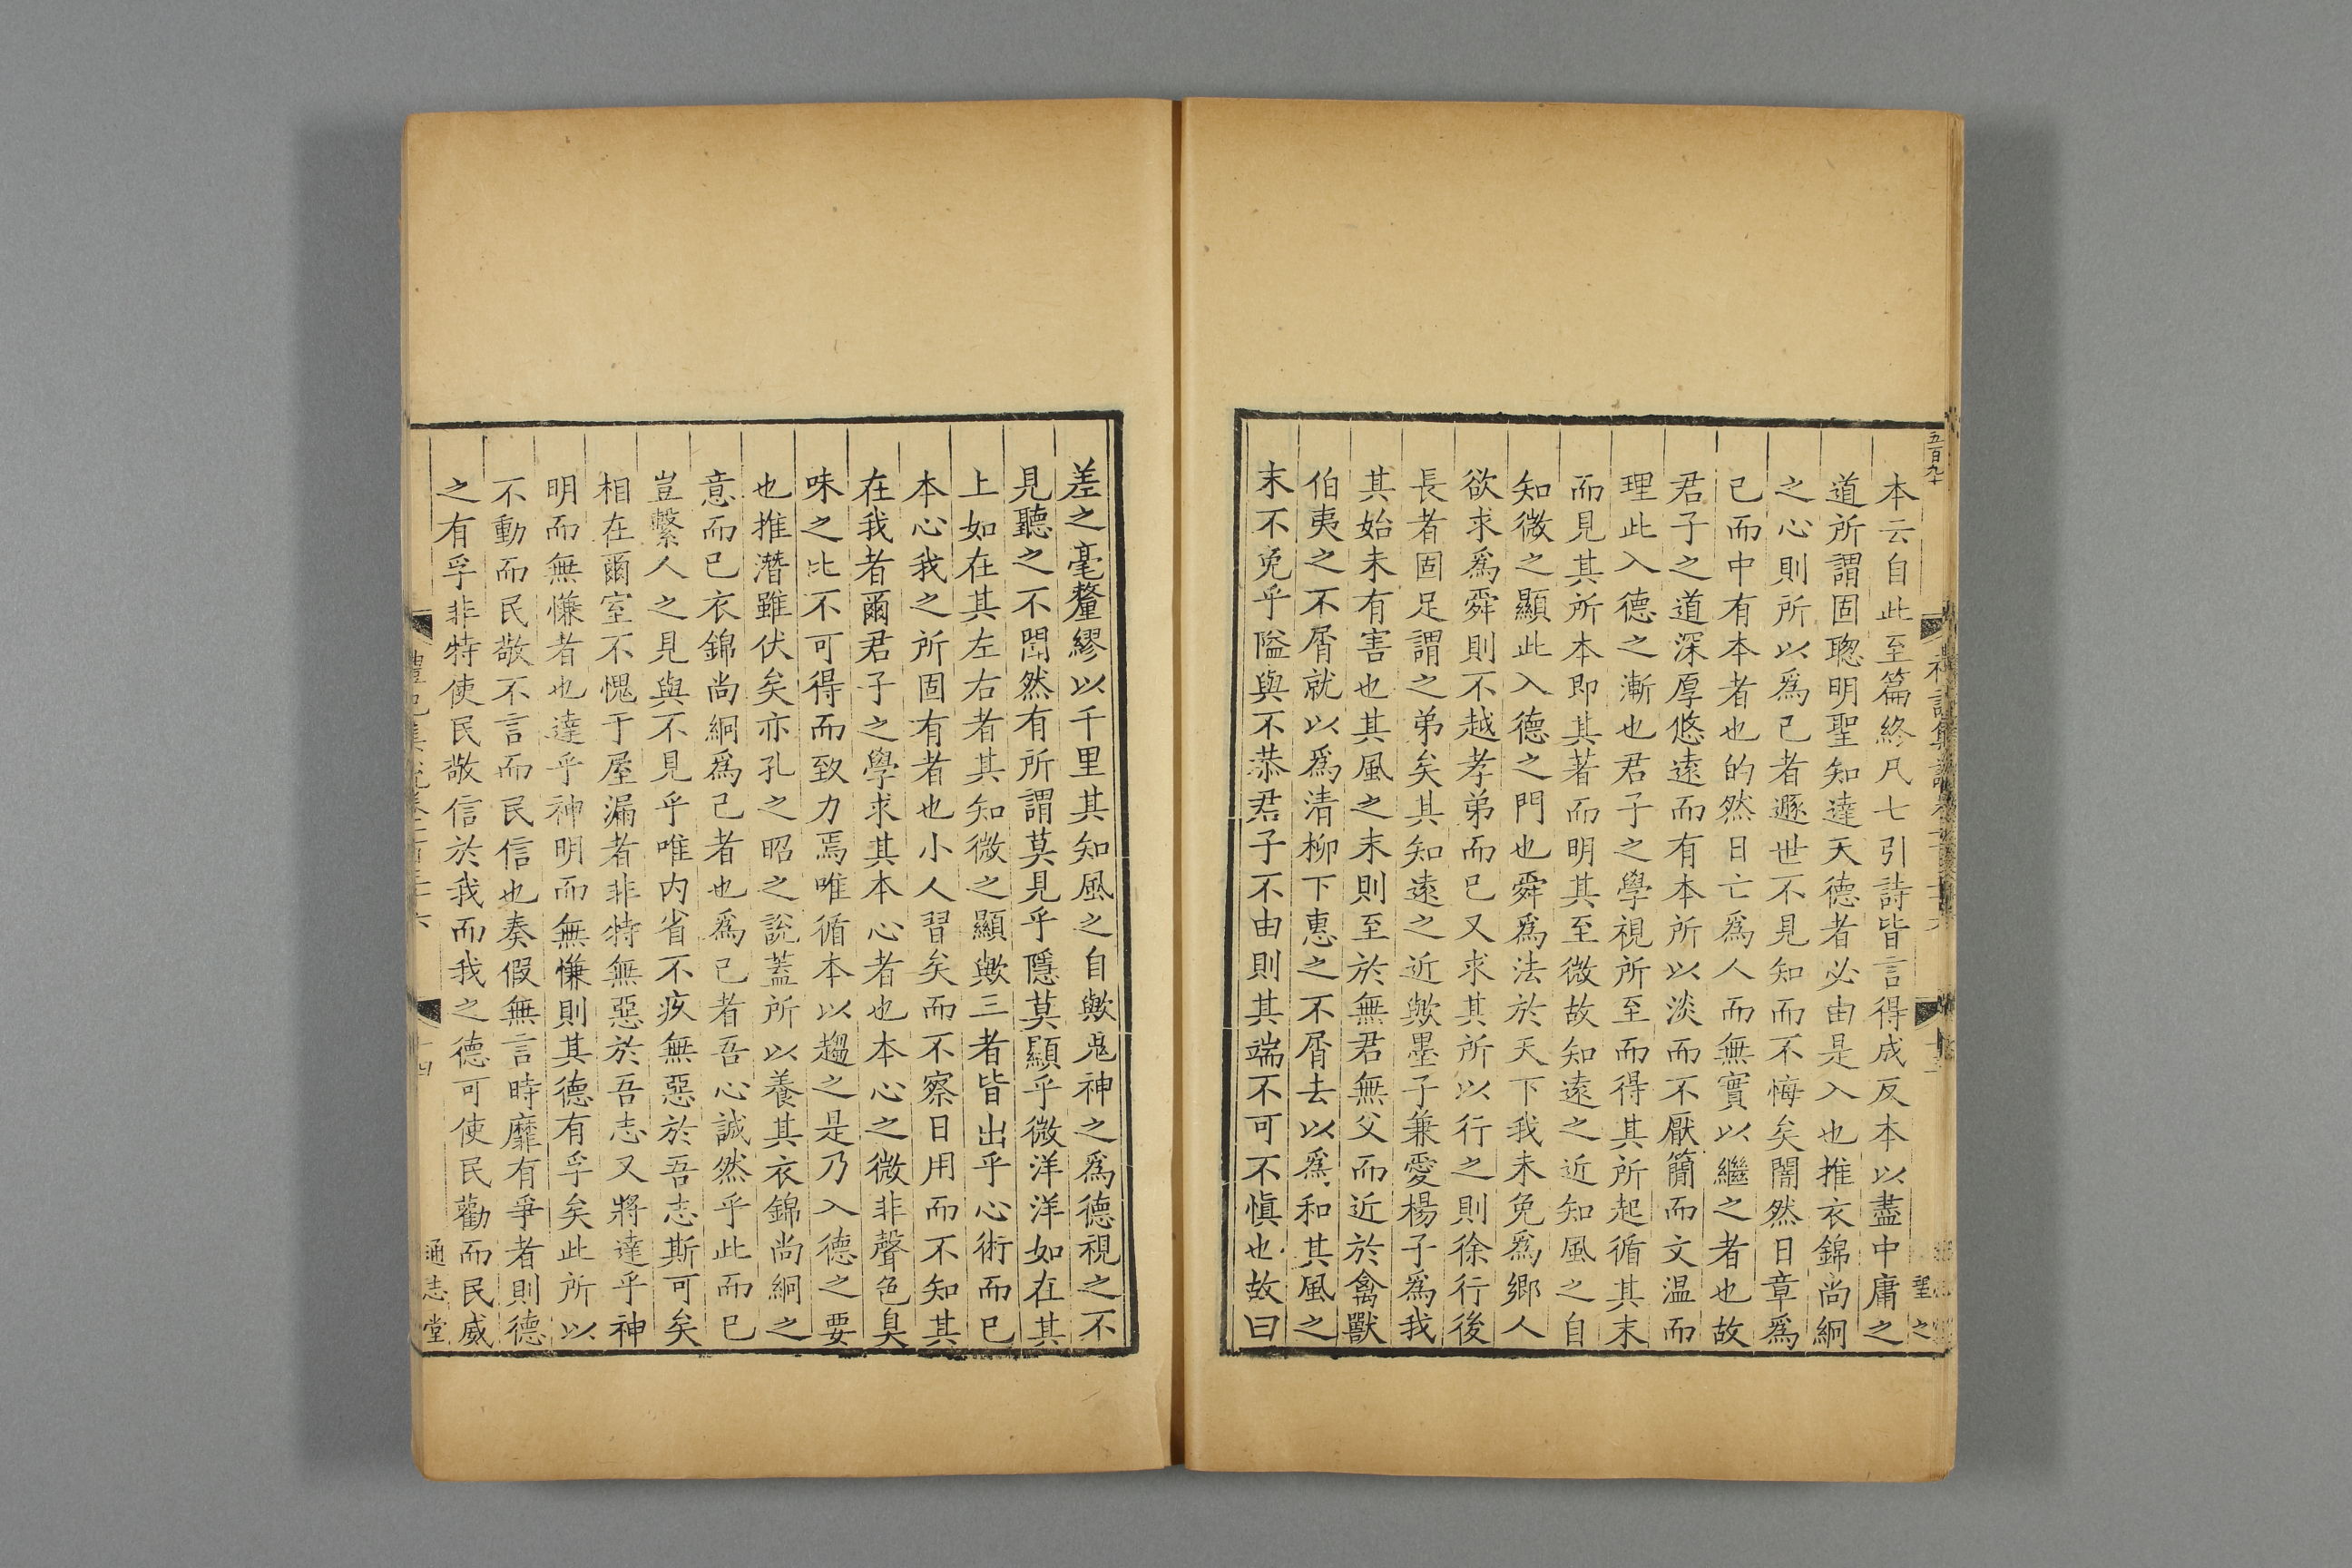 五百九十
本云自此至篇終凡七引詩皆言得成反本以盡中庸之
道所謂固聰明聖知達天德者必由是入也推衣錦尚絅
之心則所以爲己者遯世不見知而不悔矣闇然日章爲
己而中有本者也的然日亡爲人而無實以繼之者也故
君子之道深厚悠遠而有本所以淡而不厭簡而文温而
理此入德之漸也君子之學視所至而得其所起循其末
而見其所本即其著而明其至微故知遠之近知風之自
知微之顯此入德之門也舜爲法於天下我未免爲鄉人
欲求爲舜則不越孝弟而已又求其所以行之則徐行後
長者固足謂之弟矣其知遠之近歟墨子兼愛楊子爲我
其始未有害也其風之末則至於無君無父而近於禽獸
伯夷之不屑就以爲清柳下惠之不屑去以爲和其風之
末不免乎隘與不恭君子不由則其端不可不愼也故曰
差之毫釐繆以千里其知風之自歟鬼神之爲德視之不
見聽之不聞然有所謂莫見乎隱莫顯乎微洋洋如在其
上如在其左右者其知微之顯歟三者皆出乎心術而已
本心我之所固有者也小人習矣而不察日用而不知其
在我者爾君子之學求其本心者也本心之微非聲色臭
味之比不可得而致力焉唯循本以趨之是乃入德之要
也推潛雖伏矣亦孔之昭之說蓋所以養其衣錦尚絅之
意而已衣錦尚絅爲己者也爲己者吾心誠然乎此而已
豈繫人之見與不見乎唯内省不疚無惡於吾志斯可矣
相在爾室不愧于屋漏者非特無惡於吾志又將達乎神
明而無慊者也達乎神明而無慊則其德有孚矣此所以
不動而民敬不言而民信也奏假無言時靡有爭者則德
之有孚非特使民敬信於我而我之德可使民勸而民威
通志堂